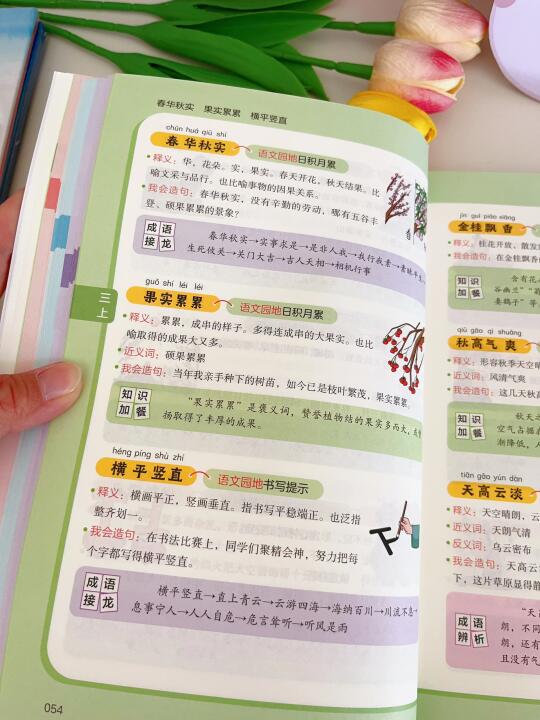 春华秋实 果实累累 横平竖直
chūn huá qiū shí
春华秋实 语文园地日积月累
释义：华，花朵。实，果实。春天开花，秋天结果。比
喻文采与品行。也比喻事物的因果关系。
我会造句：春华秋实，没有辛勤的劳动，哪有五谷丰
登、硕果累累的景象？
成语
接龙
春华秋实→实事求是→是非人我→我行我素→素昧平生
生死攸关→关门大吉→吉人天相→相机行事
三
上
guǒ shí léi léi
果实累累 语文园地日积月累
释义：累累，成串的样子。多得连成串的大果实。也比
喻取得的成果大又多。
近义词：硕果累累
我会造句：当年我亲手种下的树苗，如今已是枝叶繁茂，果实累累。
知识
加餐
“果实累累”是褒义词，赞誉植物结的果实多而大，
扬取得了丰厚的成果。
héng píng shù zhí
横平竖直 语文园地书写提示
释义：横画平正，竖画垂直。指书写平稳端正。也泛指
整齐划一。
我会造句：在书法比赛上，同学们聚精会神，努力把每
个字都写得横平竖直。
成语
接龙
横平竖直→直上青云→云游四海→海纳百川→川流不息→
息事宁人→人人自危→危言耸听→听风是雨
054
jīn guì piāo xiāng
金桂飘香
释义：桂花开放，散发
我会造句：在金桂飘香
知识
加餐
含有花
谷幽兰”“
妻鹤子”等
qiū gāo qì shuǎng
秋高气爽
释义：形容秋季天空晴
近义词：风清气爽
我会造句：这几天秋高
知识
加餐
秋天
空气占据
潮降低，人
tiān gāo yún dàn
天高云淡
释义：天空晴朗，云
近义词：天朗气清
反义词：乌云密布
我会造句：天高云
下，这片草原显得
成语
辨析
“天
朗，不同
朗，还有
且没有气